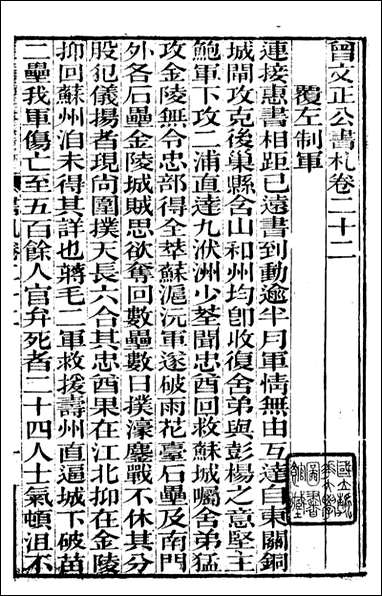 曾文正公書札卷二十二
覆左制軍
連接惠書相距已遠書到動逾半月軍情無由互達自東關銅
城閘攻克後巢縣含山和州均卽收復舍弟與彭楊之意堅主
鮑軍下攻二浦直達九洑洲少荃聞忠酋回救蘇城囑舍弟猛
攻金陵無令忠部得全萃蘇滬沅軍遂破雨花臺石壘及南門
外各石壘金陵城賊思欲奪回數壘數日撲濠鏖戰不休其分
股犯儀揚者現尚圍撲天長六合其忠酋果在江北抑在金陵
抑回蘇州洎未得其詳也蔣毛二軍救援壽州直逼城下破苗
二壘我軍傷亡至五百餘人官弁死者二十四人士氣頓沮不